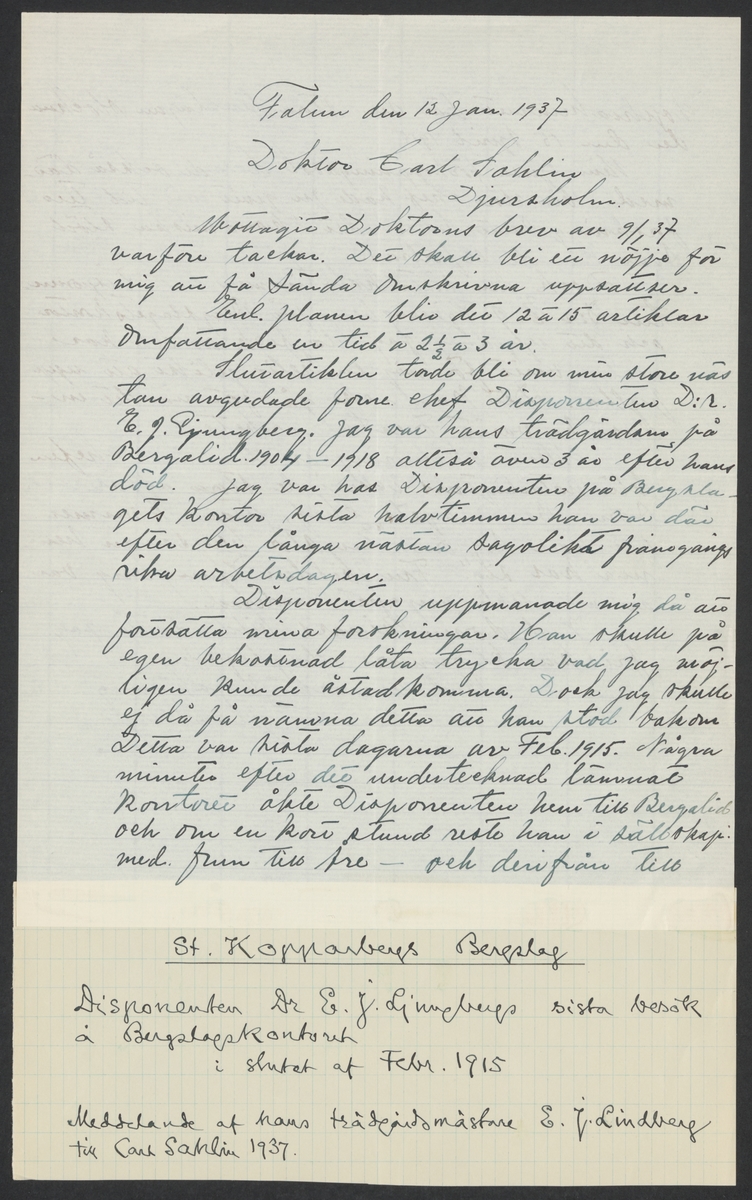 Falun den 12 Jan. 1937
Doktor Carl Sahlin
Djursholm.
Mottagit Doktorns brev av 9/1 37
varföre tackar. Det skall bli ett nöjje för
mig att få sända omskrivna uppsattser.
Enl. planen bliv det 12 à 15 artiklar
omfattande en tid à 2 1/2 à 3 år.
Slutartiklen torde bli om min store näs
tan avgudade forne chef Disponenten D:r.
E. J. Ljungberg. Jag var hans trädgårdsm på
Bergalid. 1904 – 1918 alltså även 3 år efter hans
död. Jag var hos Disponenten på Bergsla-
gets Kontor sista halvtimmen han var där
efter den långa nästan sagolikt framgångs
rika arbetsdagen.
Disponenten uppmanade mig då att
fortsätta mina forskningar. Han skulle på
egen bekostnad låta trycka vad jag möj-
ligen kunde åstadkomma. Dock jag skulle
ej då få nämna detta att han stod bakom
Detta var sista dagarna av Feb. 1915. Några
minuter efter det undertecknad lämnat
Kontoret åkte Disponenten hem till Bergalid
och om en kort stund reste han i sällskap.
med. frun till Åre — och derifrån till
St. Kopparbergs Bergslag
Disponenten Dr E. J. Ljungbergs sista besök
å Bergslagskontoret
i slutet af Febr. 1915
Meddelande af hans trädgårdsmästare E. J. Lindberg
till Carl Sahlin 1937.